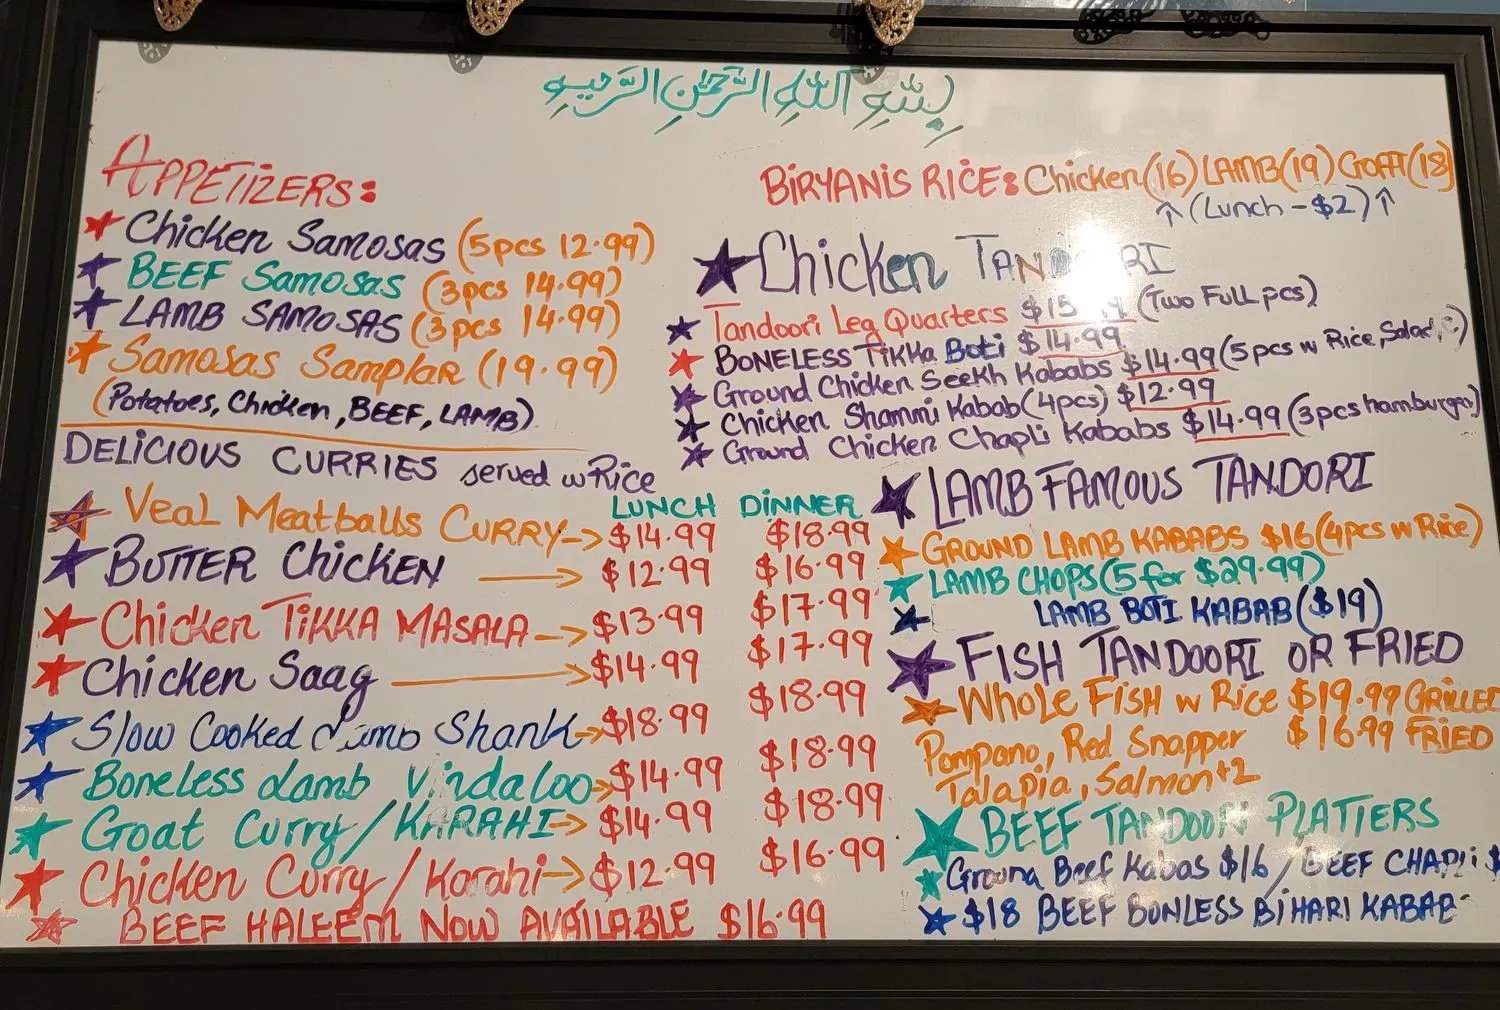 بِسْمِ اللهِ الرَّحْمٰنِ الرَّحِيمِ
APPETIZERS:
Chicken Samosas (5pcs 12.99)
BEEF Samosas (3pcs 14.99)
LAMB SAMOSAS (3pcs 14.99)
Samosas Samplar (19.99)
(Potatoes, Chicken, BEEF, LAMB)
DELICIOUS CURRIES served w Rice
LUNCH DINNER
Veal Meatballs CURRY-> $14.99 $18.99
BUTTER CHICKEN → $12.99 $16.99
Chicken TIKKA MASALA → $13.99 $17.99
Chicken Saag → $14.99 $17.99
Slow Cooked Lamb Shank → $18.99 $18.99
Boneless Lamb Vindaloo → $14.99 $18.99
Goat Curry/KARAHI → $14.99 $18.99
Chicken Curry/Karahi → $12.99 $16.99
BEEF HALEEM NOW AVAILABLE $16.99
BIRYANIS RICE: Chicken(16) LAMB(19) GOAT(18)
↑ (Lunch -$2) ↑
Chicken TANDOORI
Tandoori Leg Quarters (Two Full pcs)
BONELESS Tikka Boti $14.99
Ground Chicken Seekh Kababs $14.99 (5pcs w Rice, Salad,
Chicken Shammi Kabab (4pcs) $12.99
Ground Chicken Chapli Kababs $14.99 (3pcs hamburger)
LAMB FAMOUS TANDORI
GROUND LAMB KABABS $16 (4pcs w Rice)
LAMB CHOPS (5 for $29.99)
LAMB BOTI KABAB ($19)
FISH TANDOORI OR FRIED
WHOLE FISH w Rice $19.99 GRILLED
Pompano, Red Snapper $16.99 FRIED
Talapia, Salmon+2
BEEF TANDOORI PLATTERS
Ground Beef Kabas $16 / BEEF CHAPLI $
$18 BEEF BONLESS BIHARI KABAB